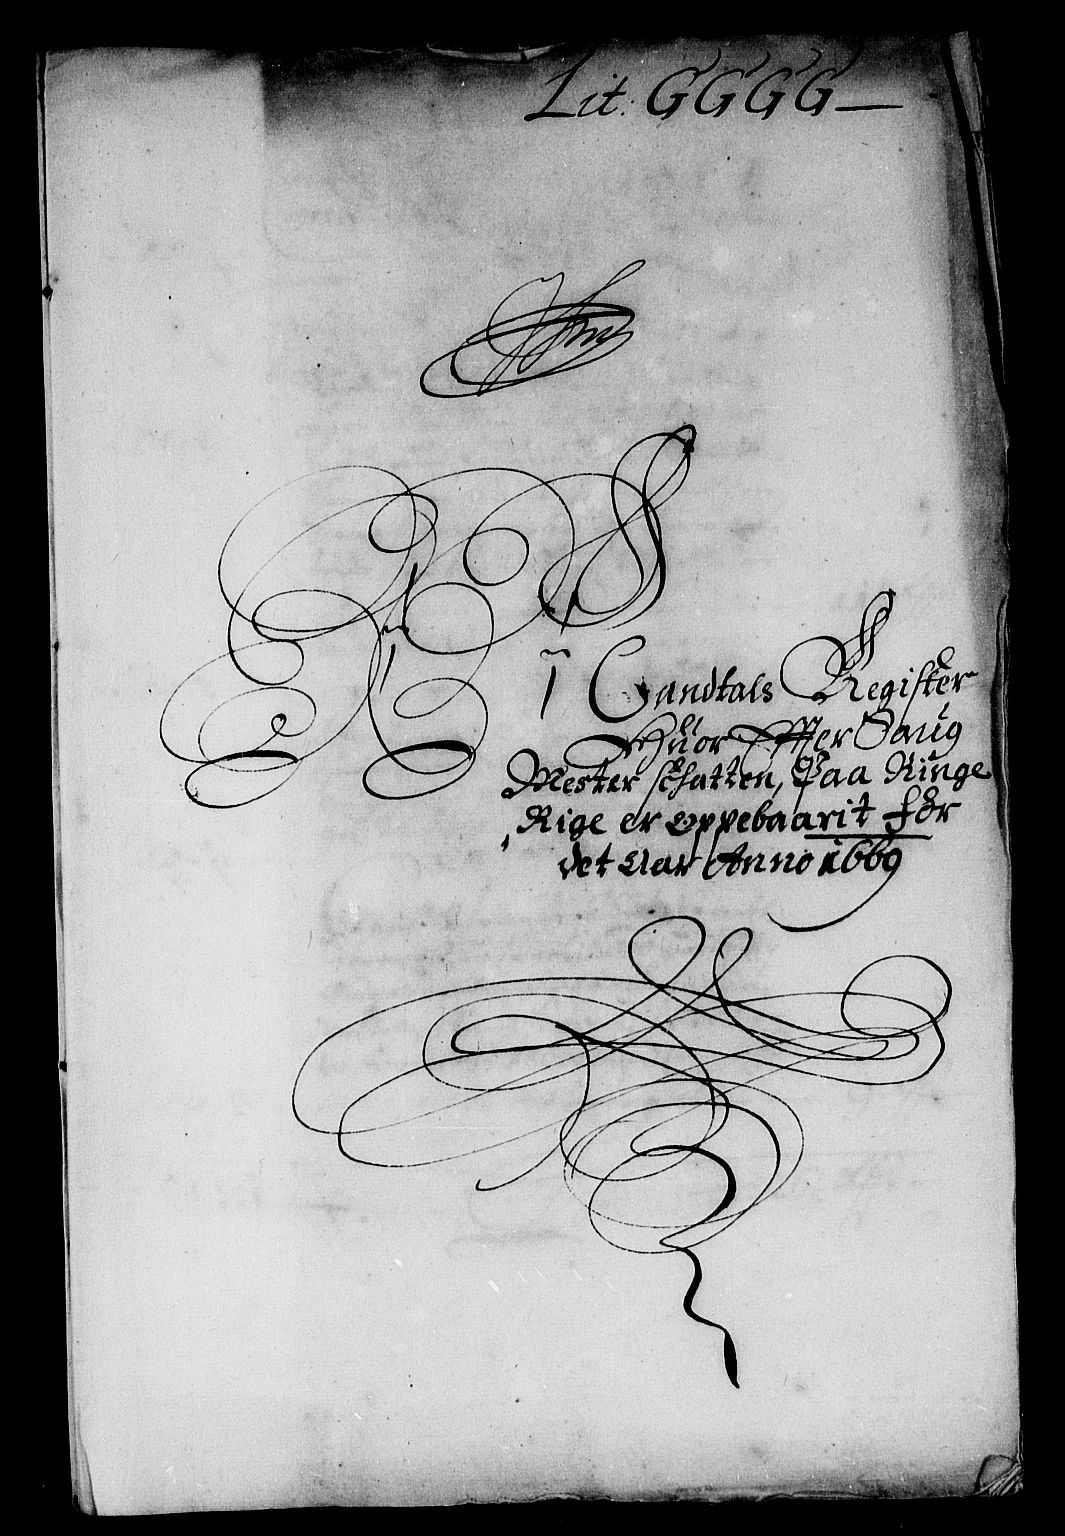 Lit: GGGG
Et
Mandtals Register
Huor Effter Saug
Mester schatten, Paa Ringe
Rige er oppebaarit for
det Aar Anno 1669